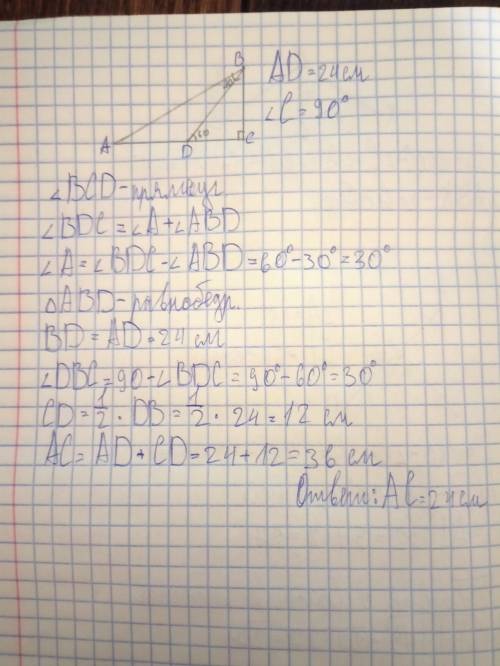 B
30°
AD = 24 см
∠C = 90°
A
60
D
C
∠BCD - прямоуг.
∠BDC = ∠A + ∠ABD
∠A = ∠BDC - ∠ABD = 60° - 30° = 30°
△ABD - равнобедр.
BD = AD = 24 см
∠DBC = 90 - ∠BDC = 90° - 60° = 30°
CD = 1/2 · DB = 1/2 · 24 = 12 см
AC = AD + CD = 24 + 12 = 36 см
Ответ: AC = 24 см